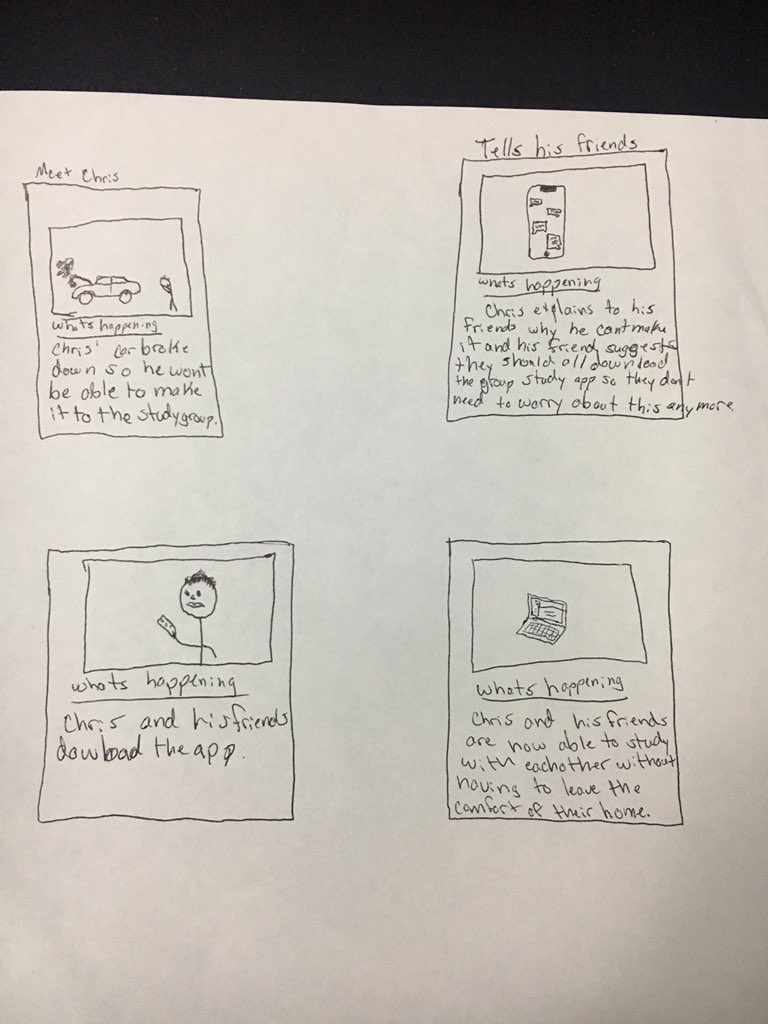 Meet Chris
whats happening
Chris' car brake
down so he wont
be able to make
it to the studygroup.
Tells his friends
whats happening
Chris explains to his
friends why he cant make
it and his friend suggests
they should all download
the group study app so they don't
need to worry about this anymore
whats happening
Chris and his friends
dowload the app.
whats happening
Chris and his friends
are now able to study
with eachother without
having to leave the
comfort of their home.